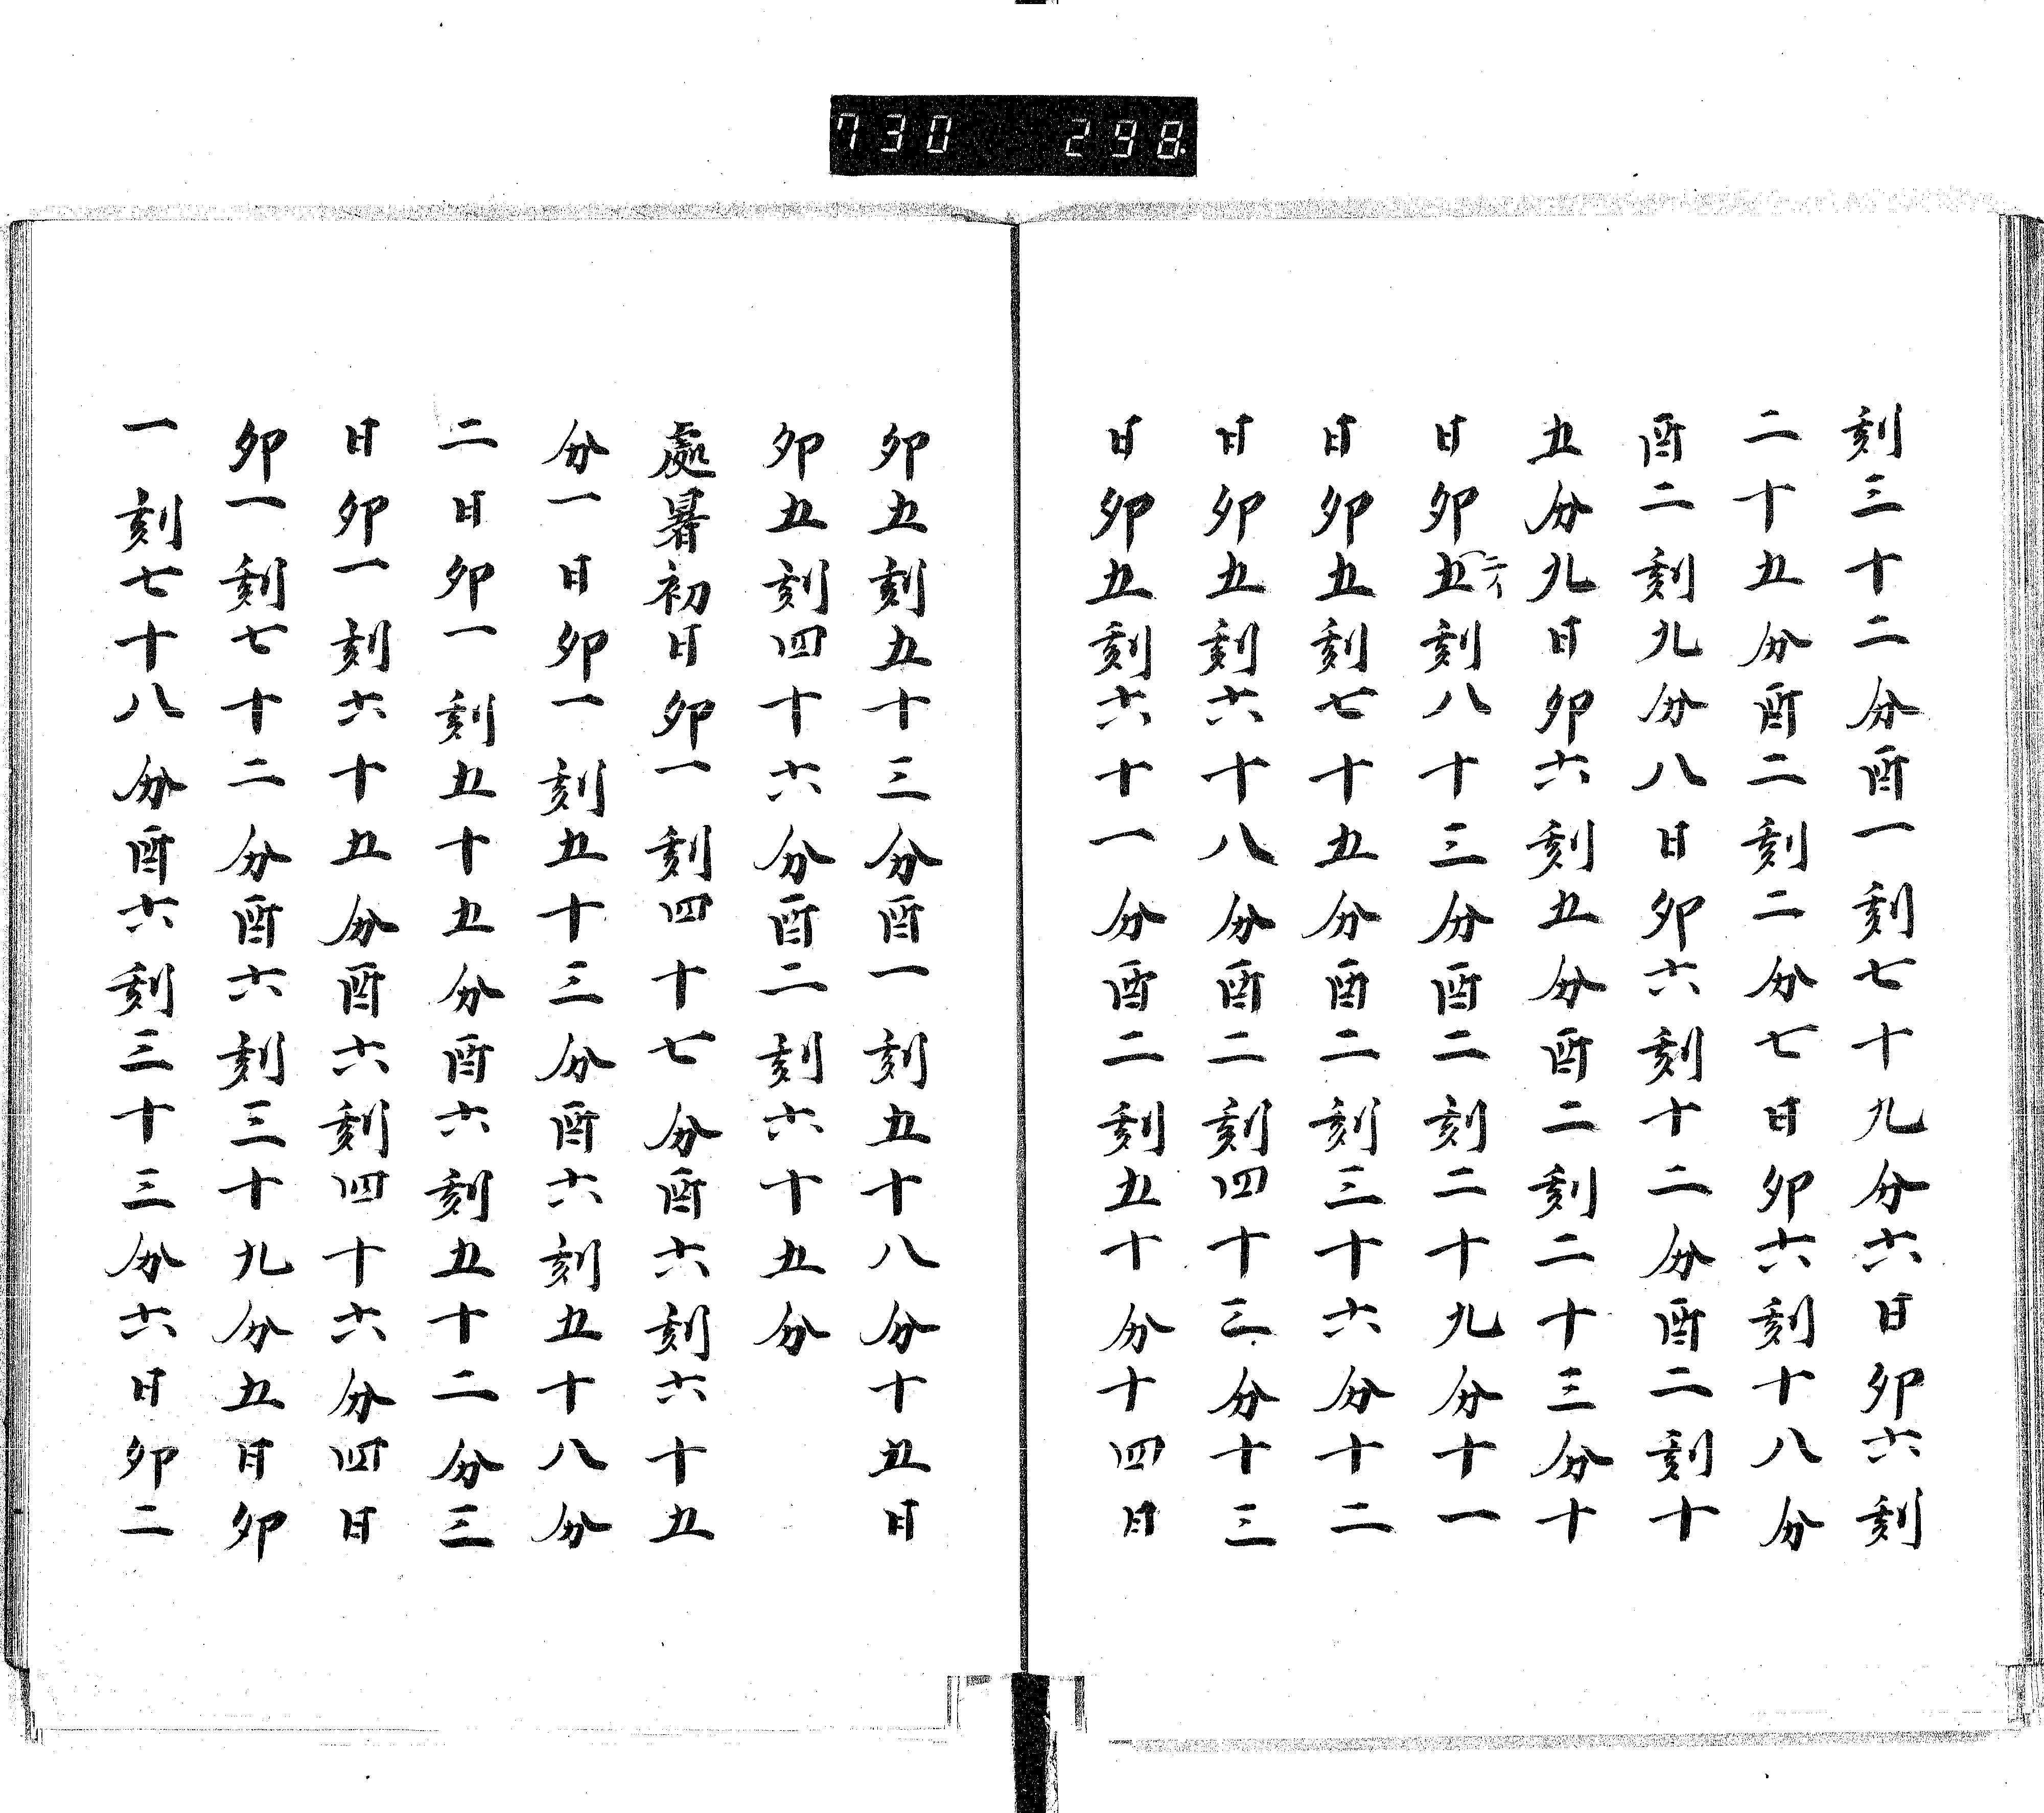 730 298
刻三十二分酉一刻七十九分六日卯六刻
二十五分酉二刻二分七日卯六刻十八分
酉二刻九分八日卯六刻十二分酉二刻十
五分九日卯六刻五分酉二刻二十三分十
日卯五刻八十三分酉二刻二十九分十一
日卯五刻七十五分酉二刻三十六分十二
日卯五刻六十八分酉二刻四十三分十三
日卯五刻六十一分酉二刻五十分十四日
卯五刻五十三分酉一刻五十八分十五日
卯五刻四十六分酉二刻六十五分
處暑初日卯一刻四十七分酉六刻六十五
分一日卯一刻五十三分酉六刻五十八分
二日卯一刻五十五分酉六刻五十二分三
日卯一刻六十五分酉六刻四十六分四日
卯一刻七十二分酉六刻三十九分五日卯
一刻七十八分酉六刻三十三分六日卯二